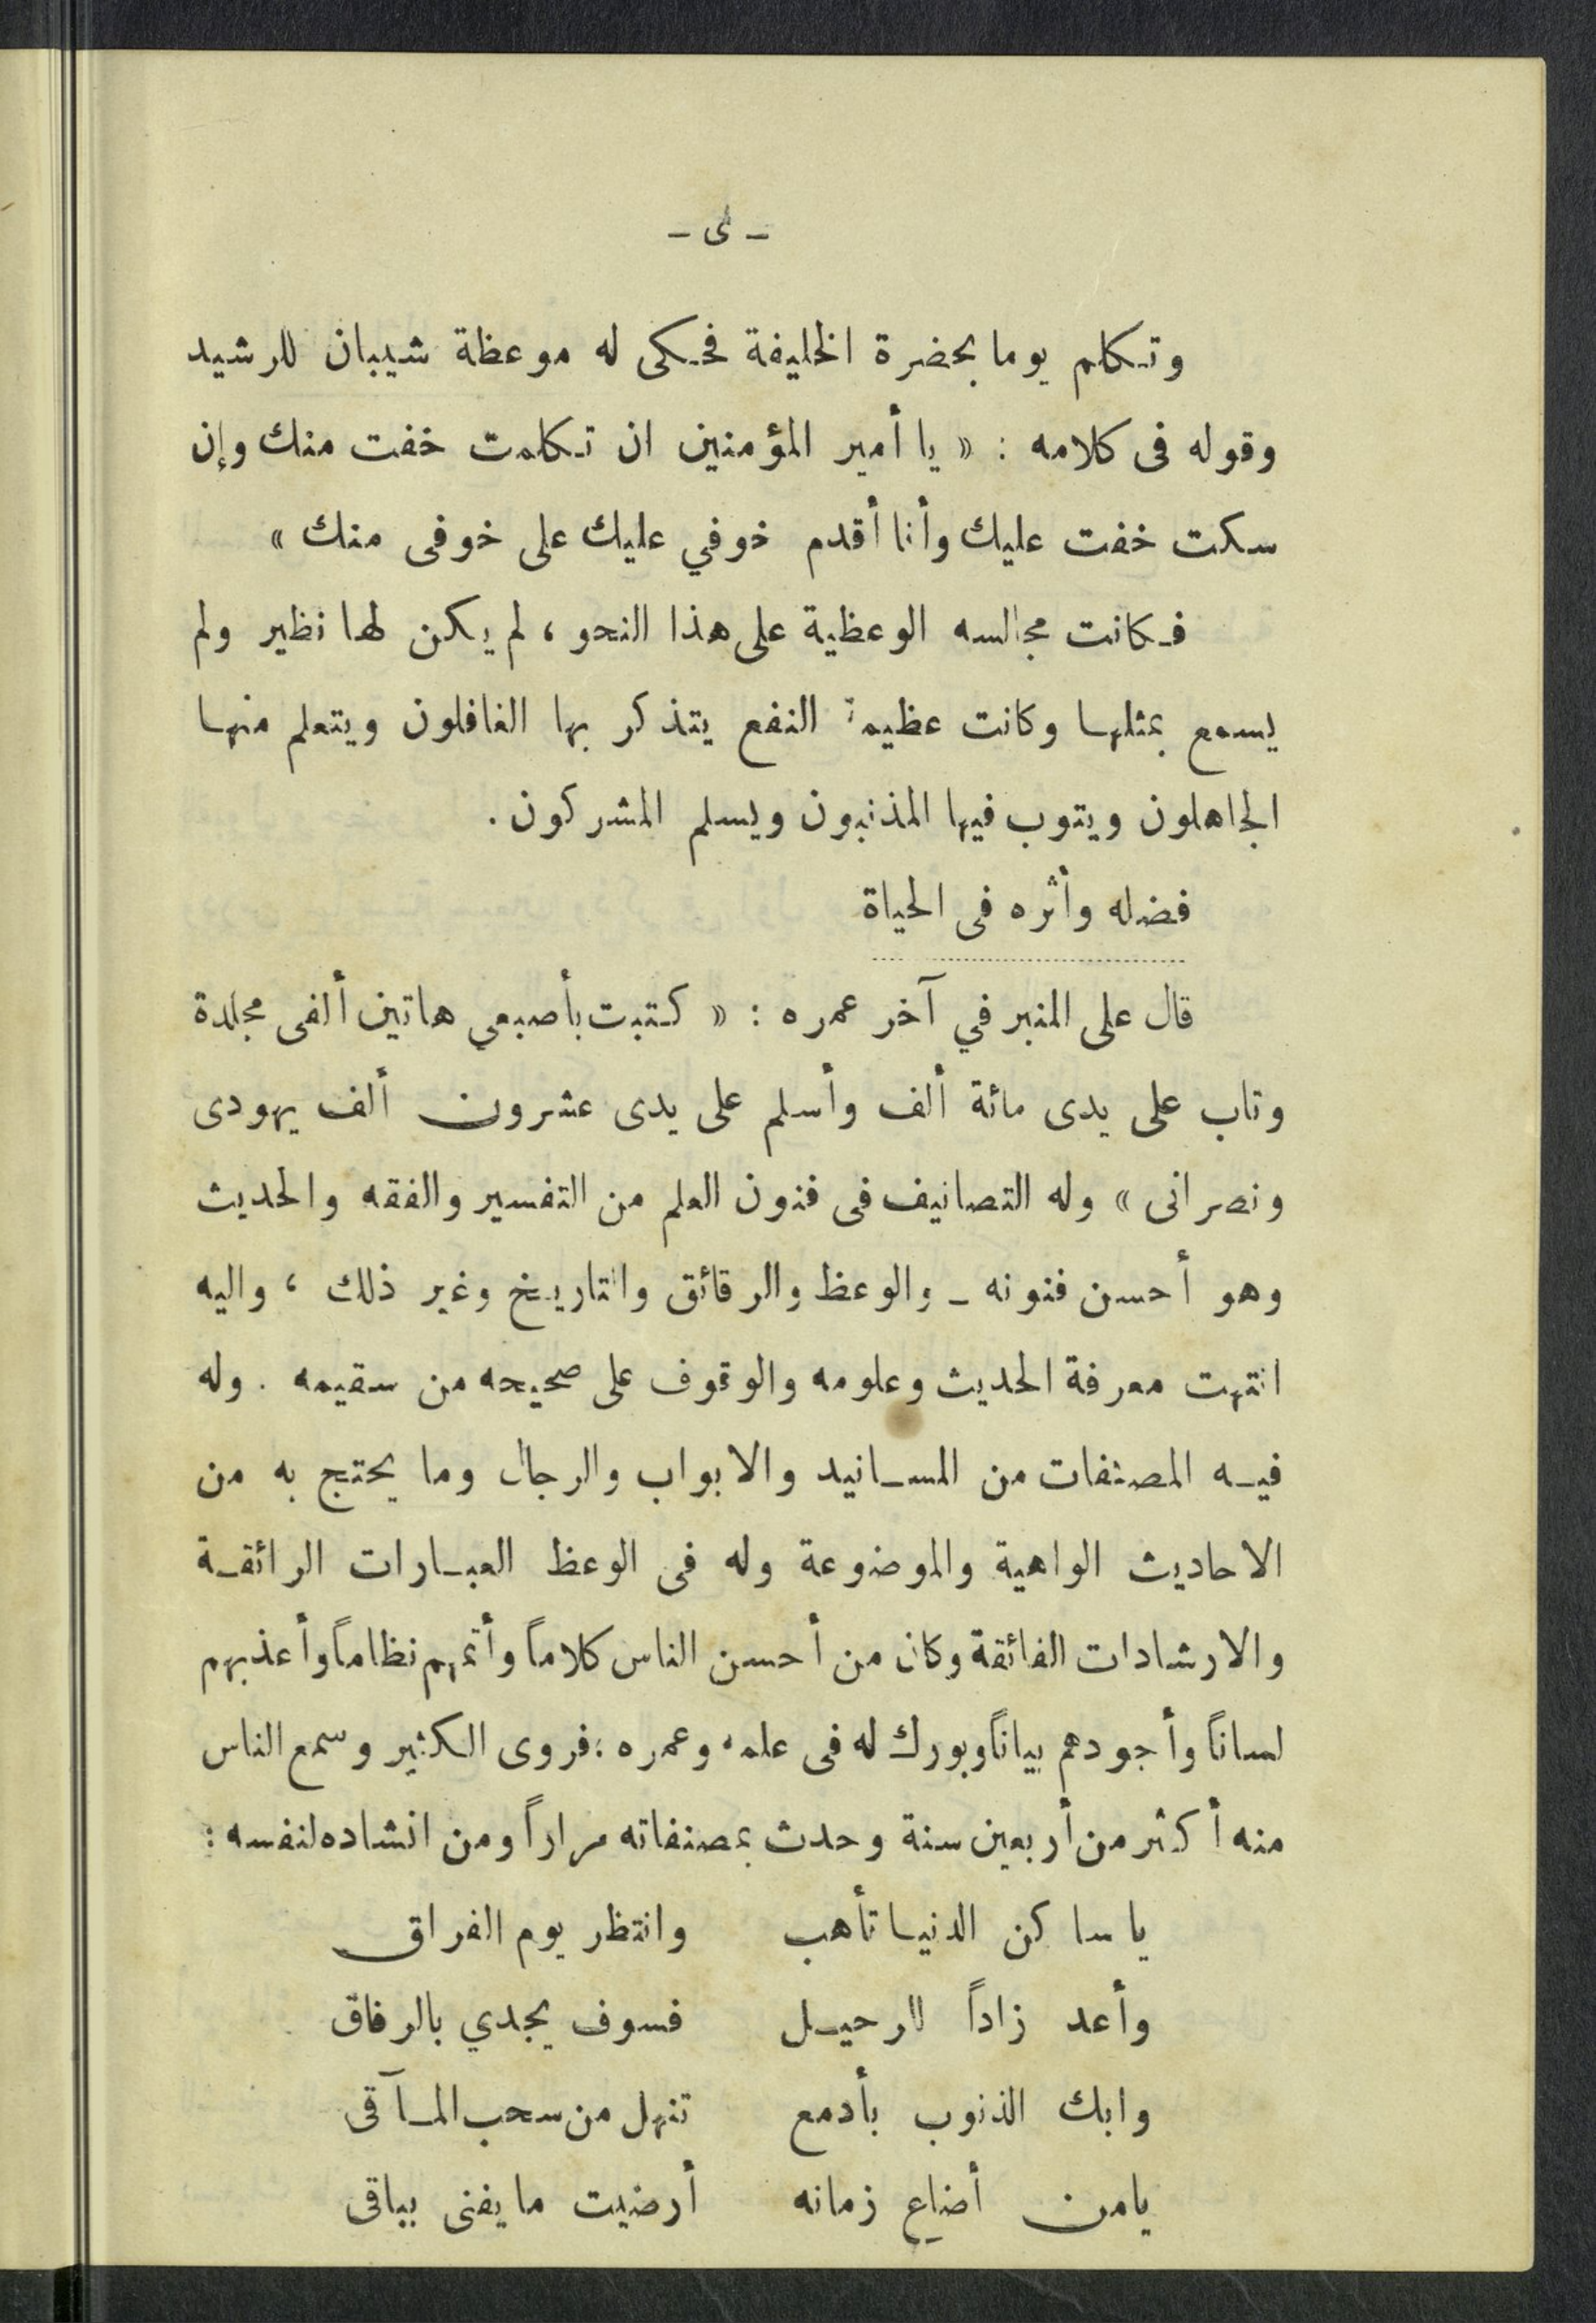 - ى -
وتكلم يوما بحضرة الخليفة فحكى له موعظة شيبان للرشيد
وقوله فى كلامه : « يا أمير المؤمنين ان تكلمت خفت منك وإن
سكت خفت عليك وأنا أقدم خوفي عليك على خوفى منك »
فكانت مجالسه الوعظية على هذا النحو ، لم يكن لها نظير ولم
يسمع بمثلها وكانت عظيمة النفع يتذكر بها الغافلون ويتعلم منها
الجاهلون ويتوب فيها المذنبون ويسلم المشركون .
فضله وأثره فى الحياة
قال على المنبر في آخر عمره : « كتبت بأصبعي هاتين ألفى مجلدة
وتاب على يدى مائة ألف وأسلم على يدى عشرون ألف يهودى
ونصرانى » وله التصانيف فى فنون العلم من التفسير والفقه والحديث
وهو أحسن فنونه - والوعظ والرقائق والتاريخ وغير ذلك ، واليه
انتهت معرفة الحديث وعلومه والوقوف على صحيحه من سقيمه . وله
فيه المصنفات من المسانيد والابواب والرجال وما يحتج به من
الاحاديث الواهية والموضوعة وله فى الوعظ العبارات الرائقة
والارشادات الفائقة وكان من أحسن الناس كلاماً وأتمهم نظاماً وأعذبهم
لساناً وأجودهم بياناً وبورك له فى علمه وعمره ؛ فروى الكثير وسمع الناس
منه أكثر من أربعين سنة وحدث بمصنفاته مراراً ومن انشاده لنفسه :
يا ساكن الدنيا تأهب وانتظر يوم الفراق
وأعد زاداً للرحيل فسوف يجدي بالرفاق
وابك الذنوب بأدمع تنهل من سحب المآقى
يامن أضاع زمانه أرضيت ما يفنى بباقى